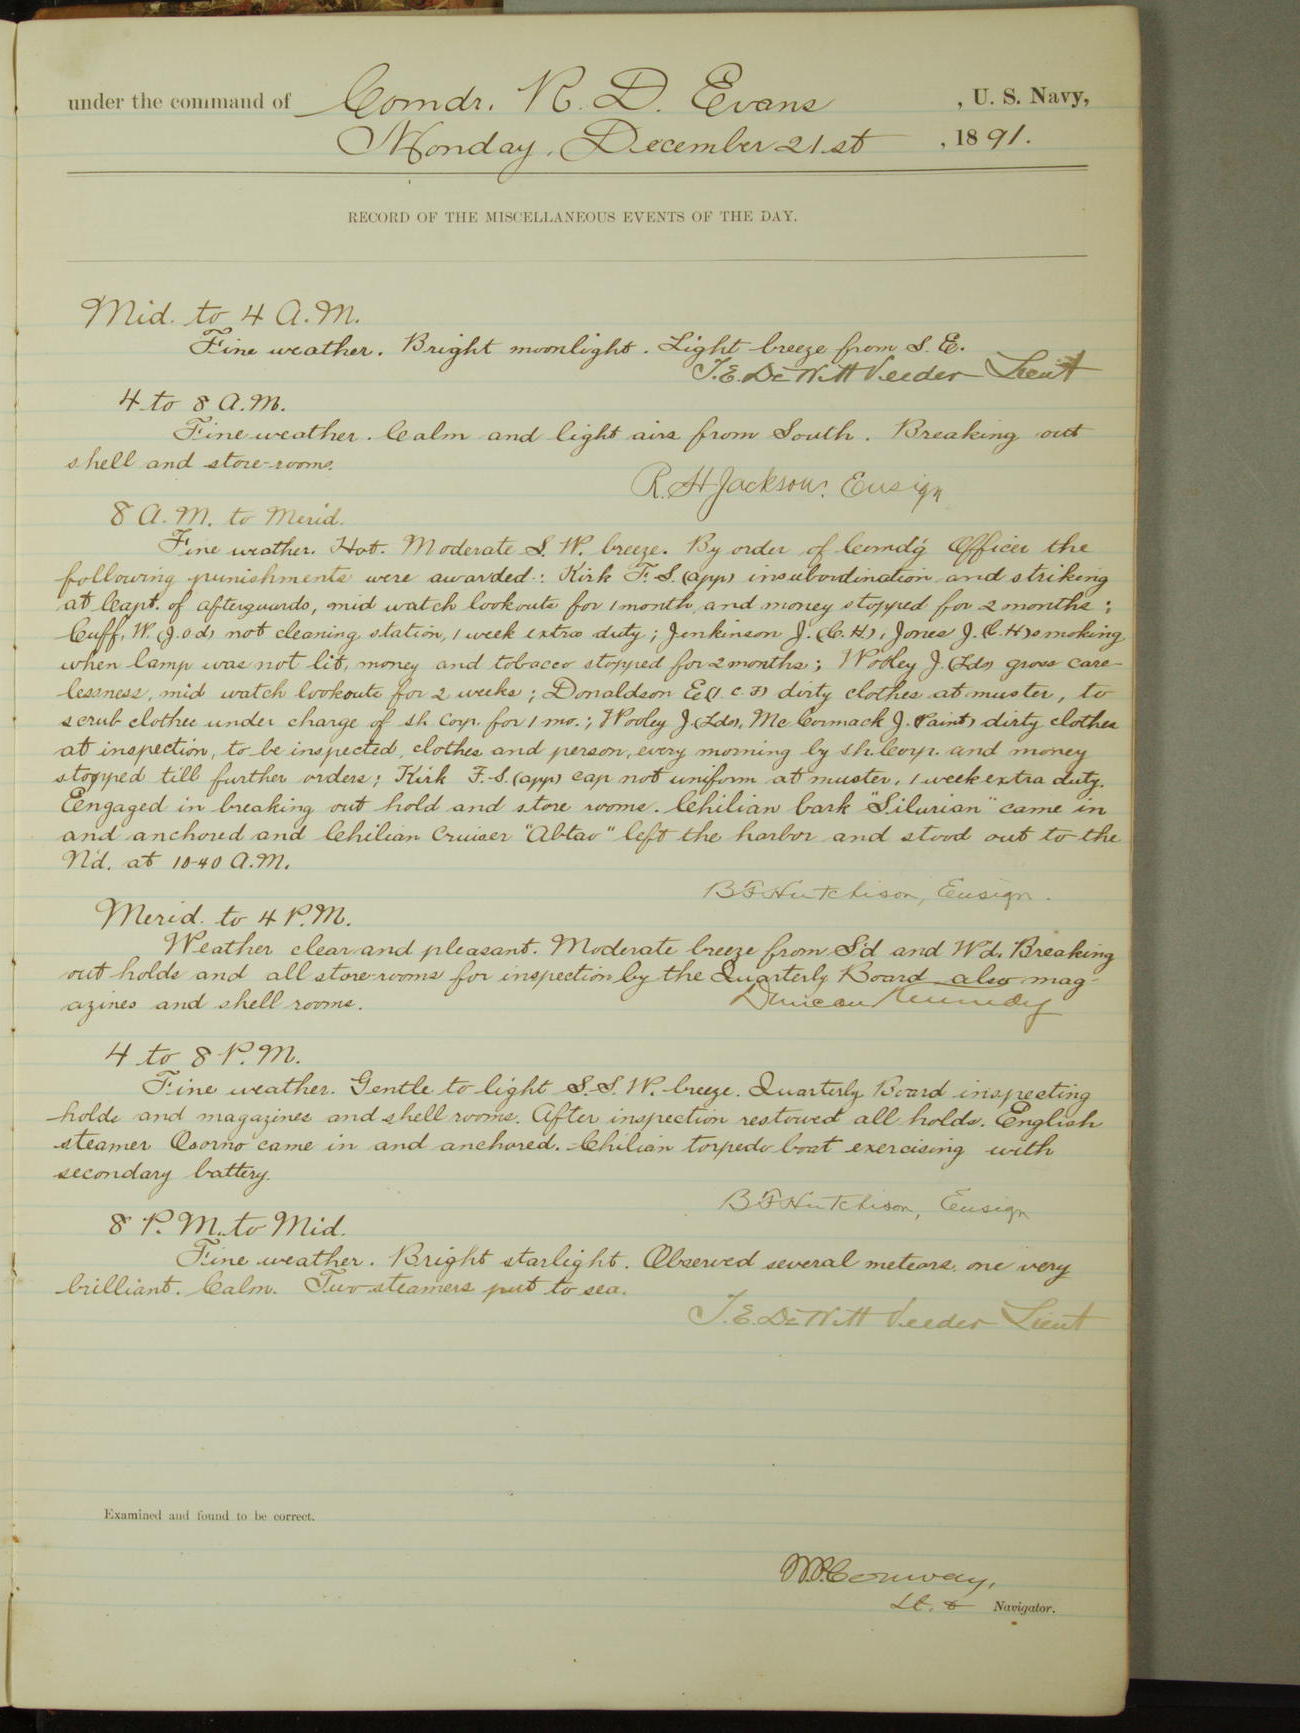 under the command of Comdr. R. D. Evans, U. S. Navy,
Monday, December 21st, 1891.
RECORD OF THE MISCELLANEOUS EVENTS OF THE DAY.
Mid. to 4 A.M.
Fine weather. Bright moonlight. Light breeze from S. E.
T.E. DeWitt Veeder Lieut
4 to 8 A.M.
Fine weather. Calm and light airs from South. Breaking out
shell and store-rooms.
R. H Jackson. Ensign
8 A.M. to Merid.
Fine weather. Hot. Moderate S. W. breeze. By order of Comd'g Officer the
following punishments were awarded: Kirk F. S. (app) insubordination and striking
at Capt. of afterguards, mid watch lookouts for 1 month, and money stopped for 2 months;
Cuff, W. (J.o.d) not cleaning station, 1 week extra duty; Jenkinson J. (C.H), Jones J. (C.H) smoking
when lamp was not lit, money and tobacco stopped for 2 months; Wooley J. (Lds) gross care-
lessness, mid watch lookouts for 2 weeks; Donaldson E (1. C. F) dirty clothes at muster, to
scrub clothes under charge of sh. Corp. for 1 mo.; Wooley J (Lds), McCormack J. (Paint) dirty clothes
at inspection, to be inspected, clothes and person, every morning by sh. Corp. and money
stopped till further orders; Kirk F. S. (app) cap not uniform at muster, 1 week extra duty.
Eengaged in breaking out hold and store rooms. Chilian bark "Silurian" came in
and anchored and Chilian Cruiser "Abtao" left the harbor and stood out to the
N'd. at 10-40 A.M.
B F Hutchison, Ensign.
Merid. to 4 P.M.
Weather clear and pleasant. Moderate breeze from S'd and W'd. Breaking
out holds and all store-rooms for inspection by the Quarterly Board also mag-
azines and shell rooms.
Duncan Kennedy
4 to 8 P.M.
Fine weather. Gentle to light S. S. W. breeze. Quarterly Board inspecting
holds and magazines and shell rooms. After inspection restowed all holds. English
steamer Osorno came in and anchored. Chilian torpedo boat exercising with
secondary battery.
B F Hutchison, Ensign
8 P.M. to Mid.
Fine weather. Bright starlight. Observed several meteors, one very
brilliant. Calm. Two steamers put to sea.
T.E. DeWitt Veeder Lieut
Examined and found to be correct.
W.P. Conway,
Lt. & Navigator.